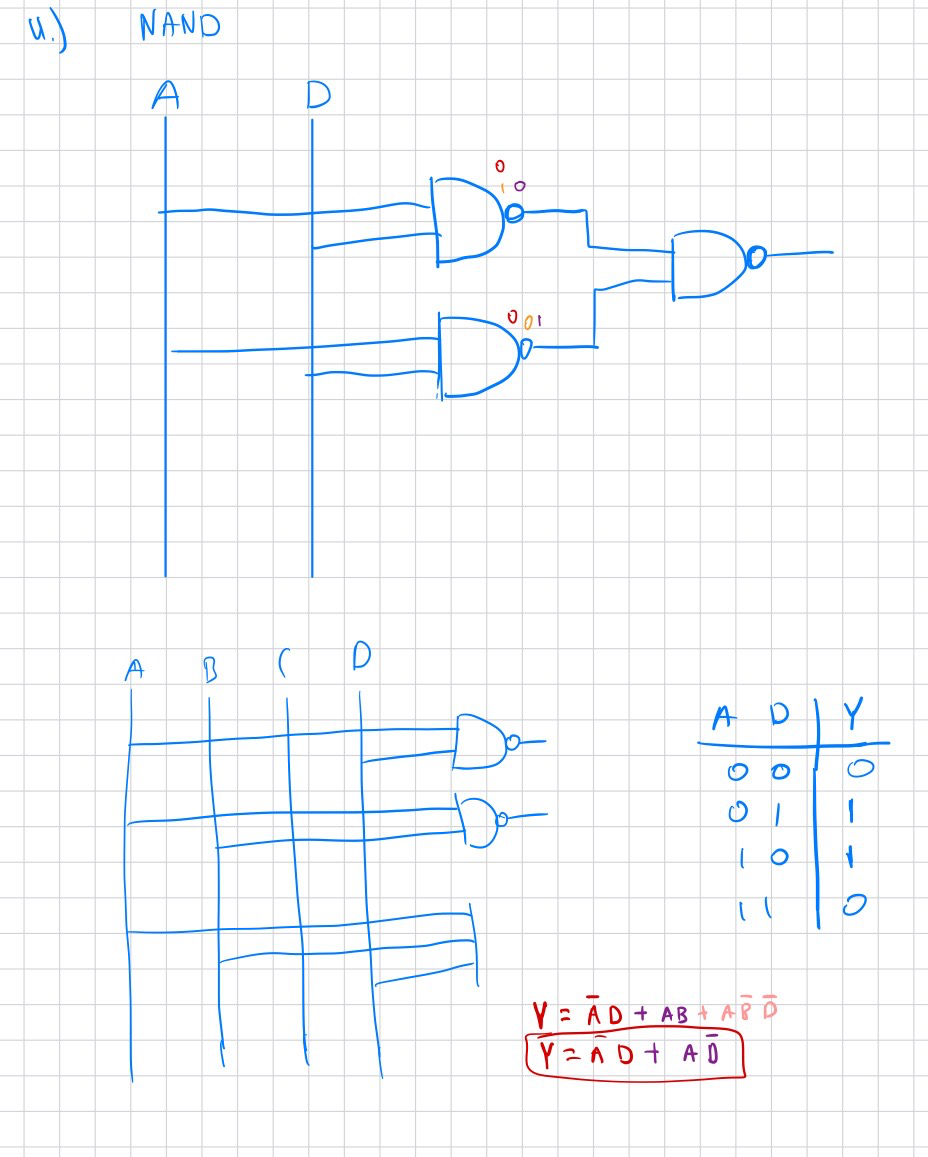 4.) NAND
A D
0
1 0
0 0 1
A B C D
A D Y
0 0 0
0 1 1
1 0 1
1 1 0
Y = A̅ D + AB + A B̅ D̅
Y = A̅ D + A D̅